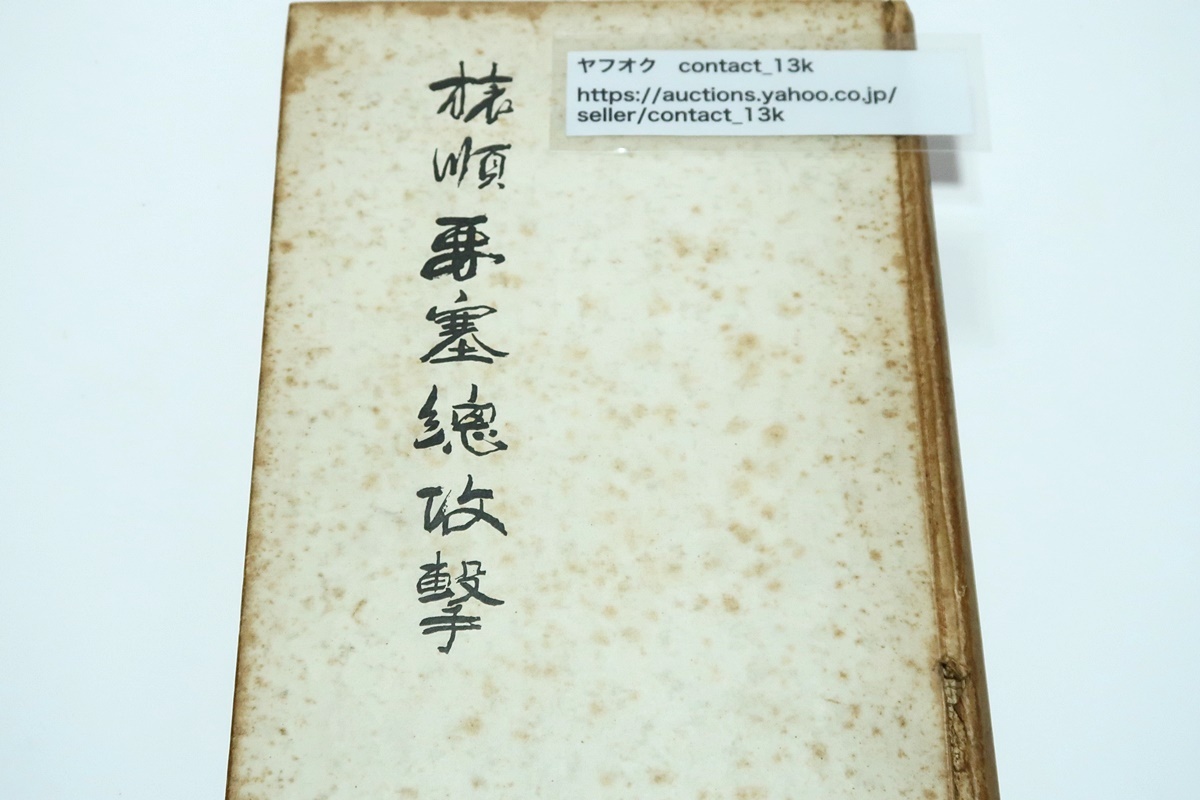 旅順要塞總攻撃
ヤフオク　contact_13k
https://auctions.yahoo.co.jp/
seller/contact_13k